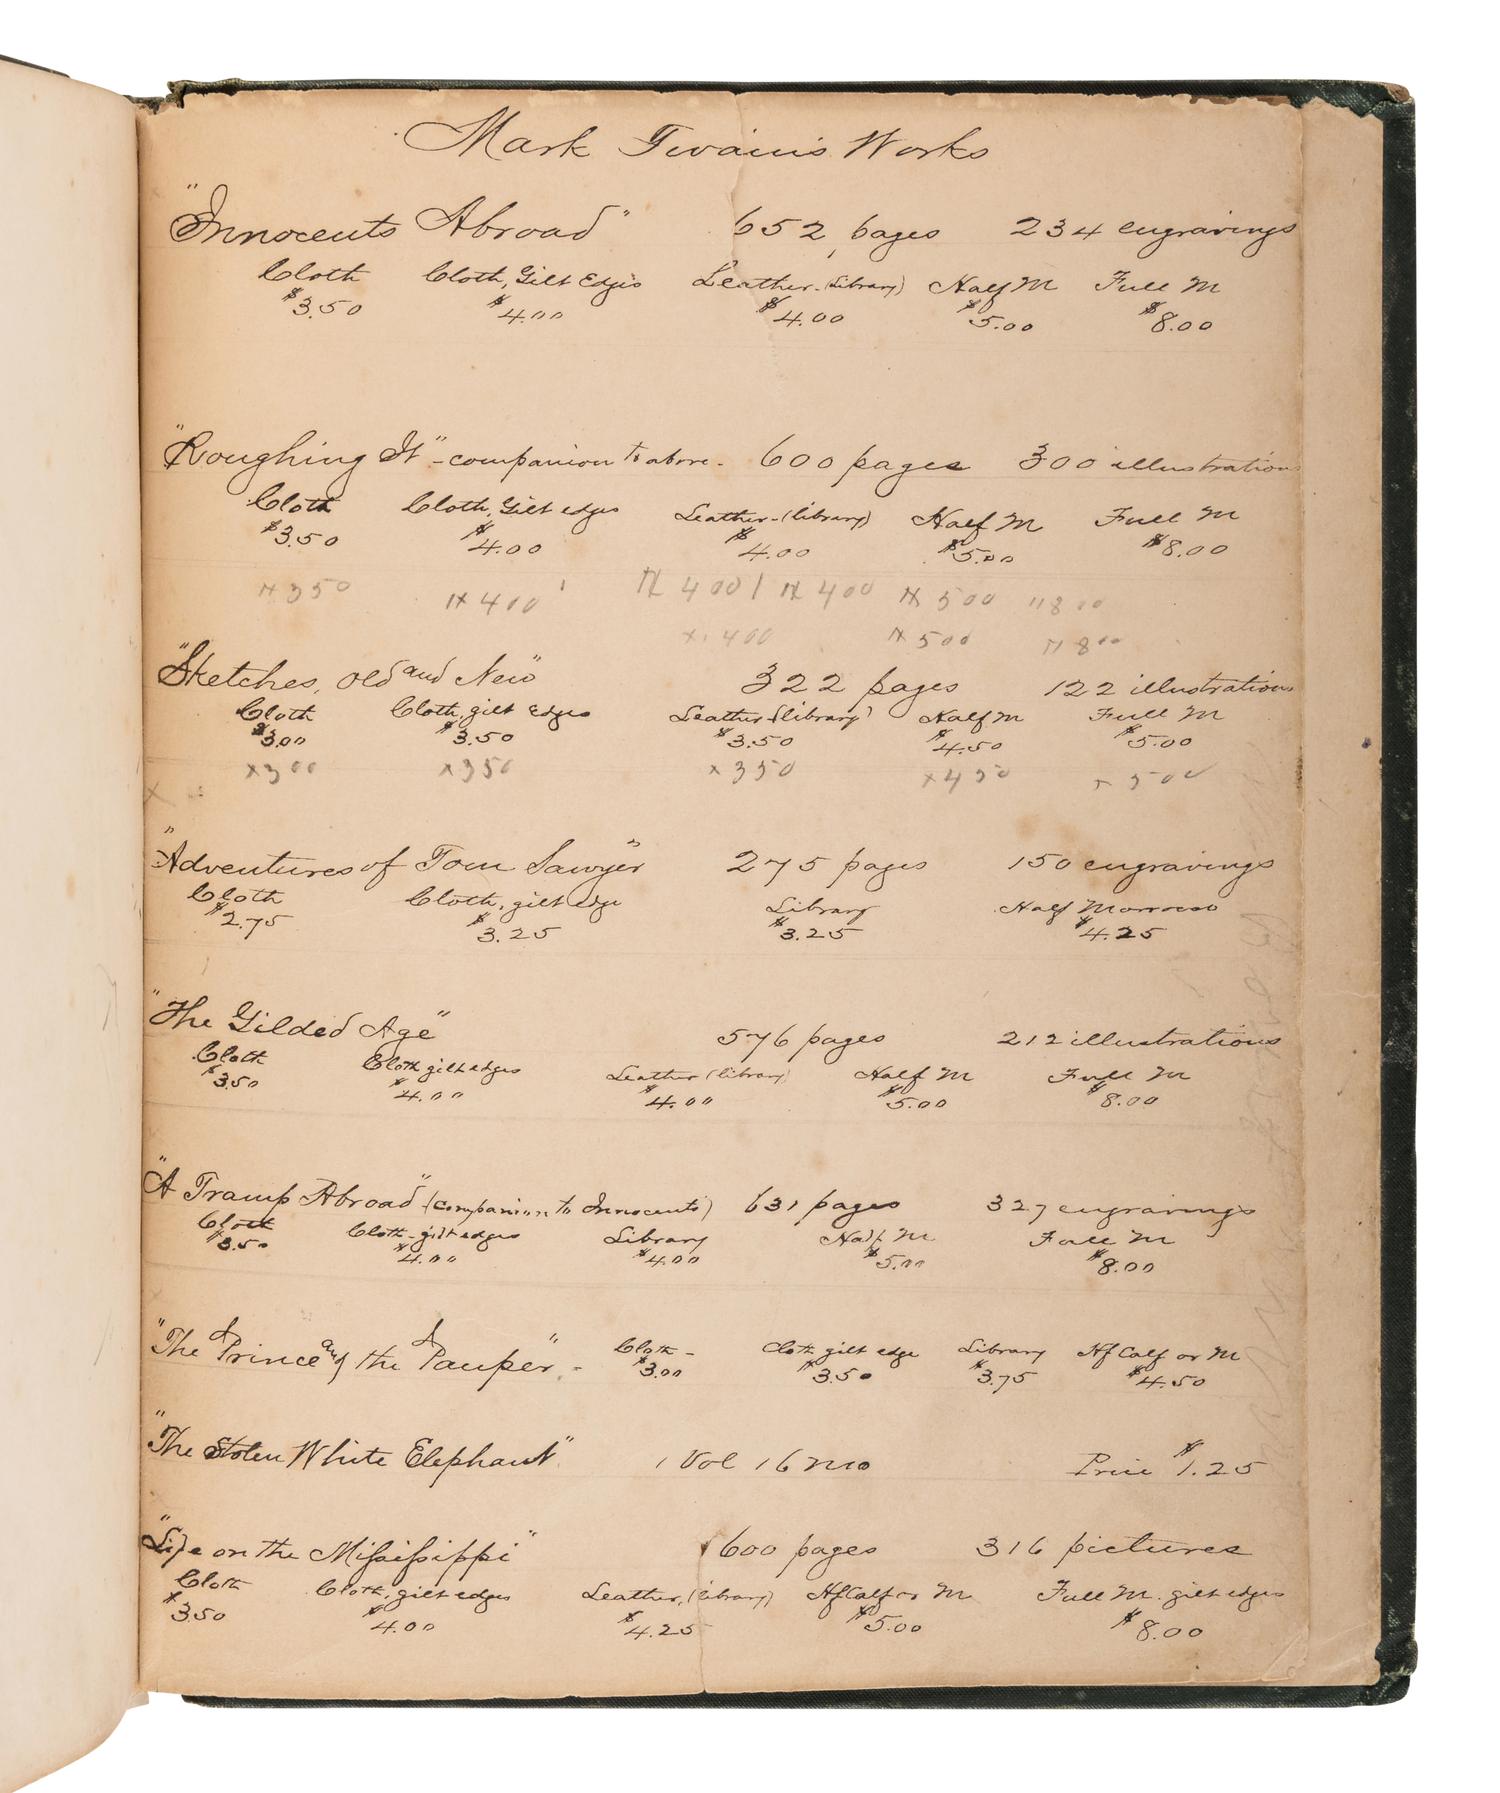 Mark Twain's Works
"Innocents Abroad" 652 pages 234 engravings
Cloth Cloth, Gilt Edges Leather-(Library) Half M Full M
$3.50 $4.00 $4.00 $5.00 $8.00
"Roughing It" - companion to above - 600 pages 300 illustrations
Cloth Cloth, Gilt edges Leather-(library) Half M Full M
$3.50 $4.00 $4.00 $5.00 $8.00
350 400 400 / 400 500 800
400 500 800
"Sketches, Old and New" 322 pages 122 illustrations
Cloth Cloth, gilt Edges Leather (library) Half M Full M
$3.00 $3.50 $3.50 $4.50 $5.00
x 300 x 350 x 350 x 450 x 500
"Adventures of Tom Sawyer" 275 pages 150 engravings
Cloth Cloth, gilt edge Library Half Morroco
$2.75 $3.25 $3.25 $4.25
"The Gilded Age" 576 pages 212 illustrations
Cloth Cloth gilt edges Leather (library) Half M Full M
$3.50 $4.00 $4.00 $5.00 $8.00
"A Tramp Abroad" (companion to Innocents) 631 pages 327 engravings
Cloth Cloth-gilt edges Library Half M Full M
$3.50 $4.00 $4.00 $5.00 $8.00
"The Prince and the Pauper" - Cloth - Cloth gilt edge Library Hf Calf or M
$3.00 $3.50 $3.75 $4.50
"The Stolen White Elephant" 1 Vol 16 mo Price $1.25
"Life on the Mississippi" 600 pages 316 pictures
Cloth Cloth, gilt edges Leather, (library) Hf Calf or M Full M. gilt edges
$3.50 $4.00 $4.25 $5.00 $8.00